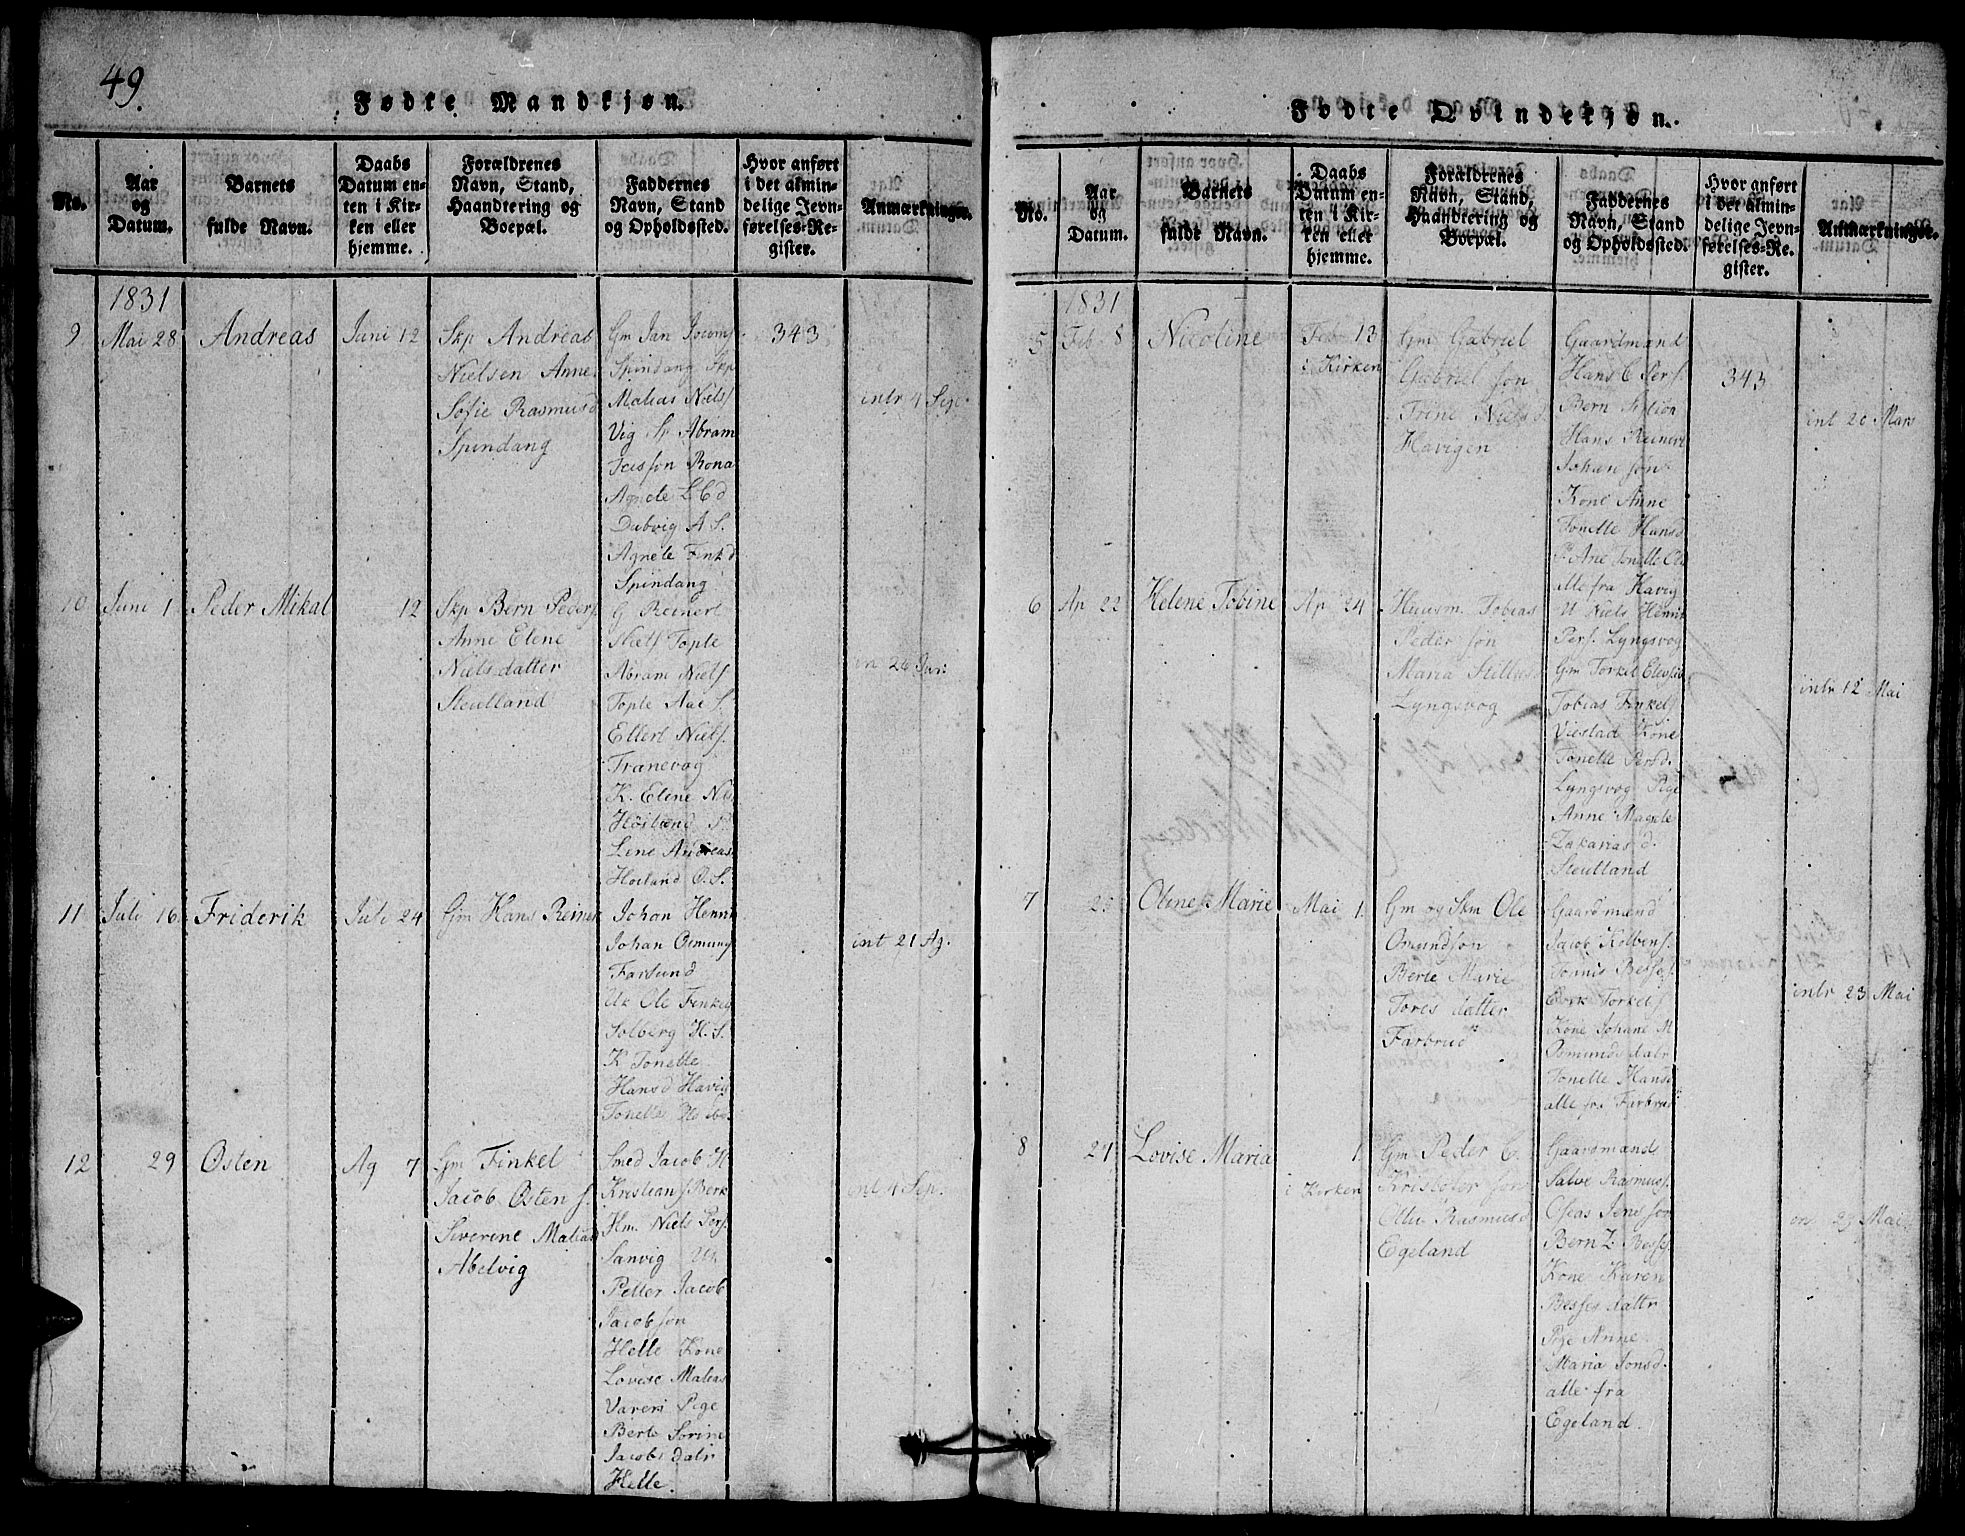 49.
Fødte Mandkjøn.
No.
Aar
og
Datum.
Barnets
fulde Navn.
Daabs
Datum en-
ten i Kir-
ken eller
hjemme.
Forældrenes
Navn, Stand,
Haandtering og
Boepæl.
Faddernes
Navn, Stand
og Opholdssted.
Hvor anført
i det almin-
delige Jevn-
førelses-Re-
gister.
Anmærkninger.
1831
9
Mai 28
Andreas
Juni 12
Skp Andreas
Nielsen Anne
Sofie Rasmusd
Spindang
Gm Jan
Spindang Skp
Matias Niels
Vig Abram
Agnete
Agnete Finkd
Spindang
343
intr 4 Sep.
10
Juni 1
Peder Mikal
12
Skp Bern Peders
Anne Elene
Nielsdatter
Steulland
G Reinert
Niels Topte
Abram Niels.
Topte
Ellert Niels.
Tranevog
K. Elene Nils
Höiland P
Lene Andreas
Hoiland O. S.
in 26 Jun:
11
Juli 16
Friderik
Juli 24
Gm Hans Reiner
Johan Henrik
Johan Osmung
Farsund
Uk Ole Finkel
Solberg H. S.
K Tonette
Hansd Havig
Tonette
int 21 Ag.
12
29
Østen
Ag 7
Gm Finkel
Jacob Østen s
Severine Matiasd
Abelvig
Smed Jacob H
Kristians Berk
Hm. Niels Pers.
Sanvig
Petter Jacob
Jacobson
Helle Kone
Lovise Matias
Vareri Pige
Berte Sorine
Jacobs datr
Helle.
int 4 Sep.
Fødte Qvindekjøn.
No.
Aar
og
Datum.
Barnets
fuldt Navn.
Daabs
Datum en-
ten i Kir-
ken eller
hjemme.
Forældrenes
Navn, Stand,
Haandtering og
Boepæl.
Faddernes
Navn, Stand
og Opholdssted.
Hvor anført
i det almin-
delige Jevn-
førelses-Re-
gister.
Anmærkninger.
1831
5
Feb 8
Nicoline
Feb 13
i Kirken
Gm Gabriel
Gabriel søn
Trine Nielsd
Havigen
Gaardmænd
Hans C Pers.
Bern
Hans Reinert
Johan søn
Kone Anne
Tonette Hansd
P. Ane Tonette
alle fra Havig
343
int 20 Mars
6
Ap 22
Helene Tobine
Ap 24
Huusm. Tobias
Peder søn
Maria
Lyngsvog
U Niels Henrik
Pers. Lyngsvog
Gm Torkel
Tobias Finkels
Viestad Kone
Tonette Persd.
Lyngsvog Pige
Anne Magrete
Zakarias d.
Steulland
intr 12 Mai
7
25
Oline Marie
Mai 1.
Gm og Skm Ole
Omundsøn
Berte Marie
Tores datter
Farbrud
Gaardmænd
Jacob Kolbens.
Tönnis Besses.
Eerk Torkels
Kone Johane M
Osmunds datr
Tonette Hansd
alle fra Farbrud
intr 23 Mai
8
27
Lovise Maria
1
i Kirken
Gm Peder C.
Kristofer søn
Rasmusd
Egeland
Gaardsmænd
Salve Rasmuss.
Oseas Jens søn
Bern Z Besses.
Kone Karen
Besses dattr
Pige Anne
Maria Jonsd.
alle fra
Egeland.
in 23 Mai